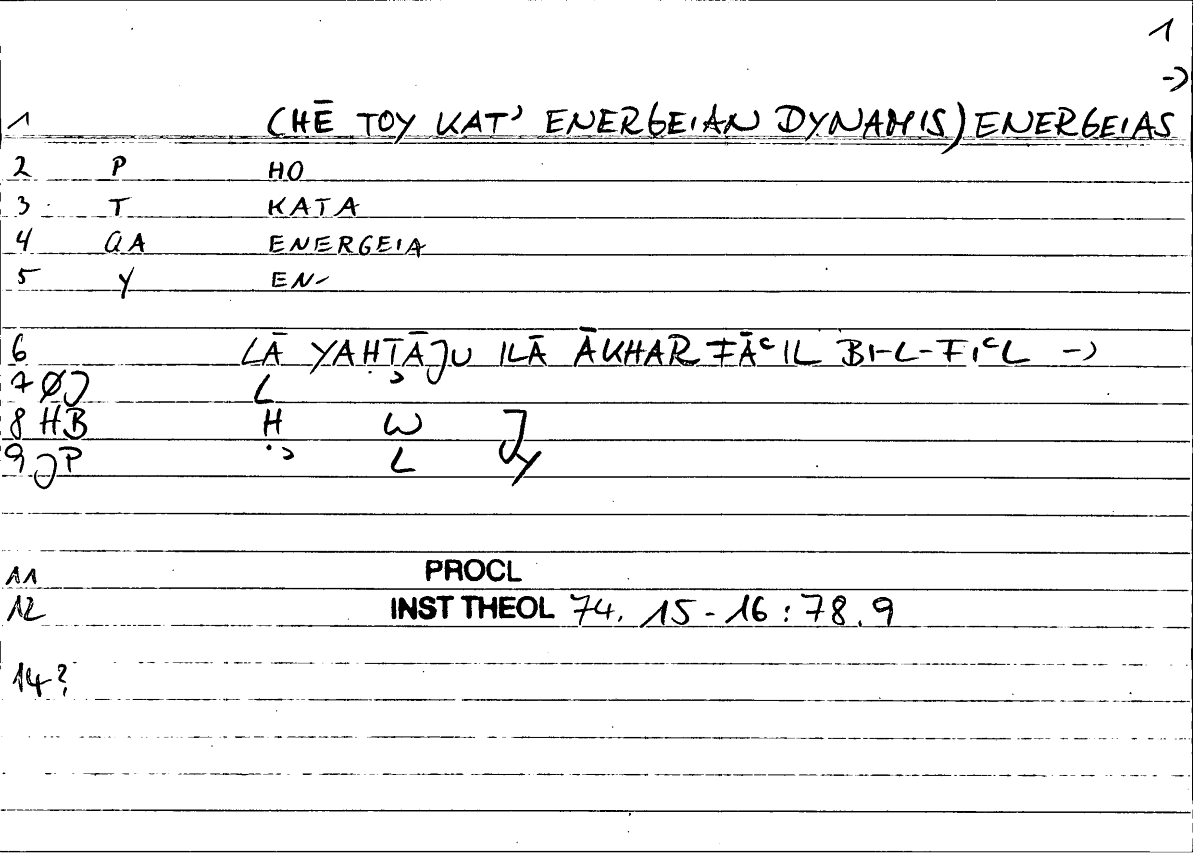 1
->
1 (HĒ TOY KAT' ENERGEIAN DYNAMIS) ENERGEIAS
2 P HO
3 T KATA
4 QA ENERGEIA
5 Y EN-
6 LĀ YAḤTĀJU ILĀ ĀKHAR FĀʿIL BI-L-FIʿL ->
7 ØJ L ʾ
8 HB H W J
9 JP ʾ L Y
11 PROCL
12 INST THEOL 74. 15-16 : 78.9
14?